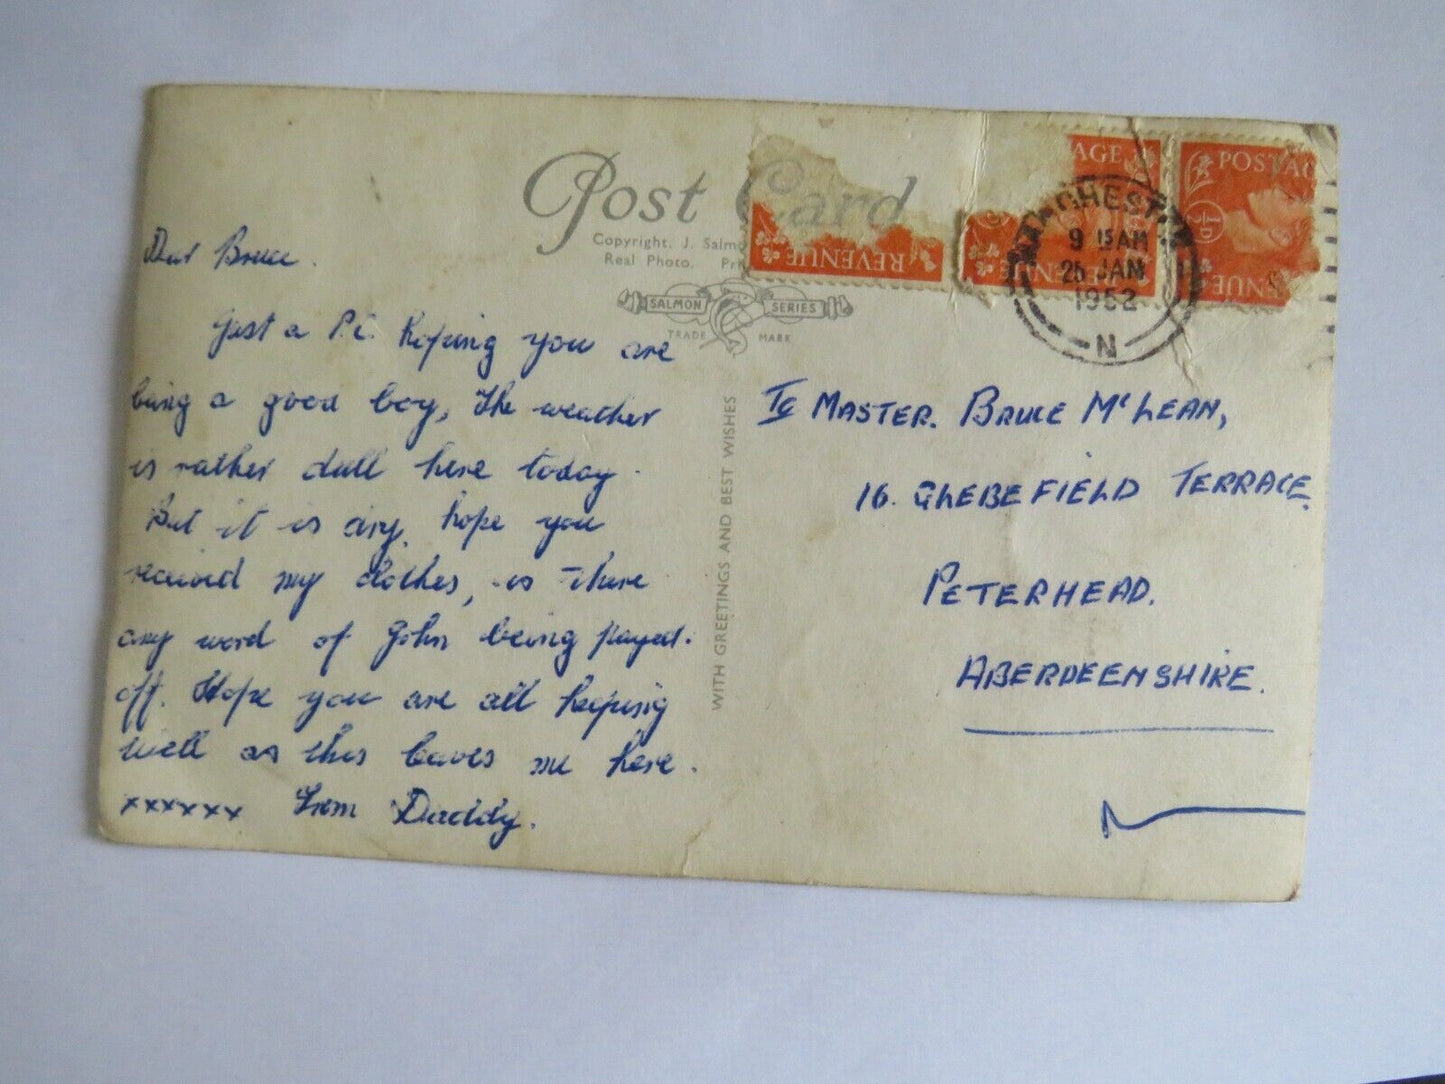 Post Card
Copyright. J. Salmo
Real Photo.
SALMON SERIES
TRADE MARK
WITH GREETINGS AND BEST WISHES
REVENUE
AGE
POSTAG
ENUE
MANCHESTER
9 15 AM
25 JAN
1952
N
Dear Bruce.
Just a P.C. Hoping you are
being a good boy, The weather
is rather dull here today.
But it is dry. hope you
received my clothes, is there
any word of John being payed.
off. Hope you are all keeping
well as this leaves me here.
xxxxxx From Daddy.
To MASTER. BRUCE McLEAN,
16. GLEBEFIELD TERRACE.
PETERHEAD.
ABERDEENSHIRE.